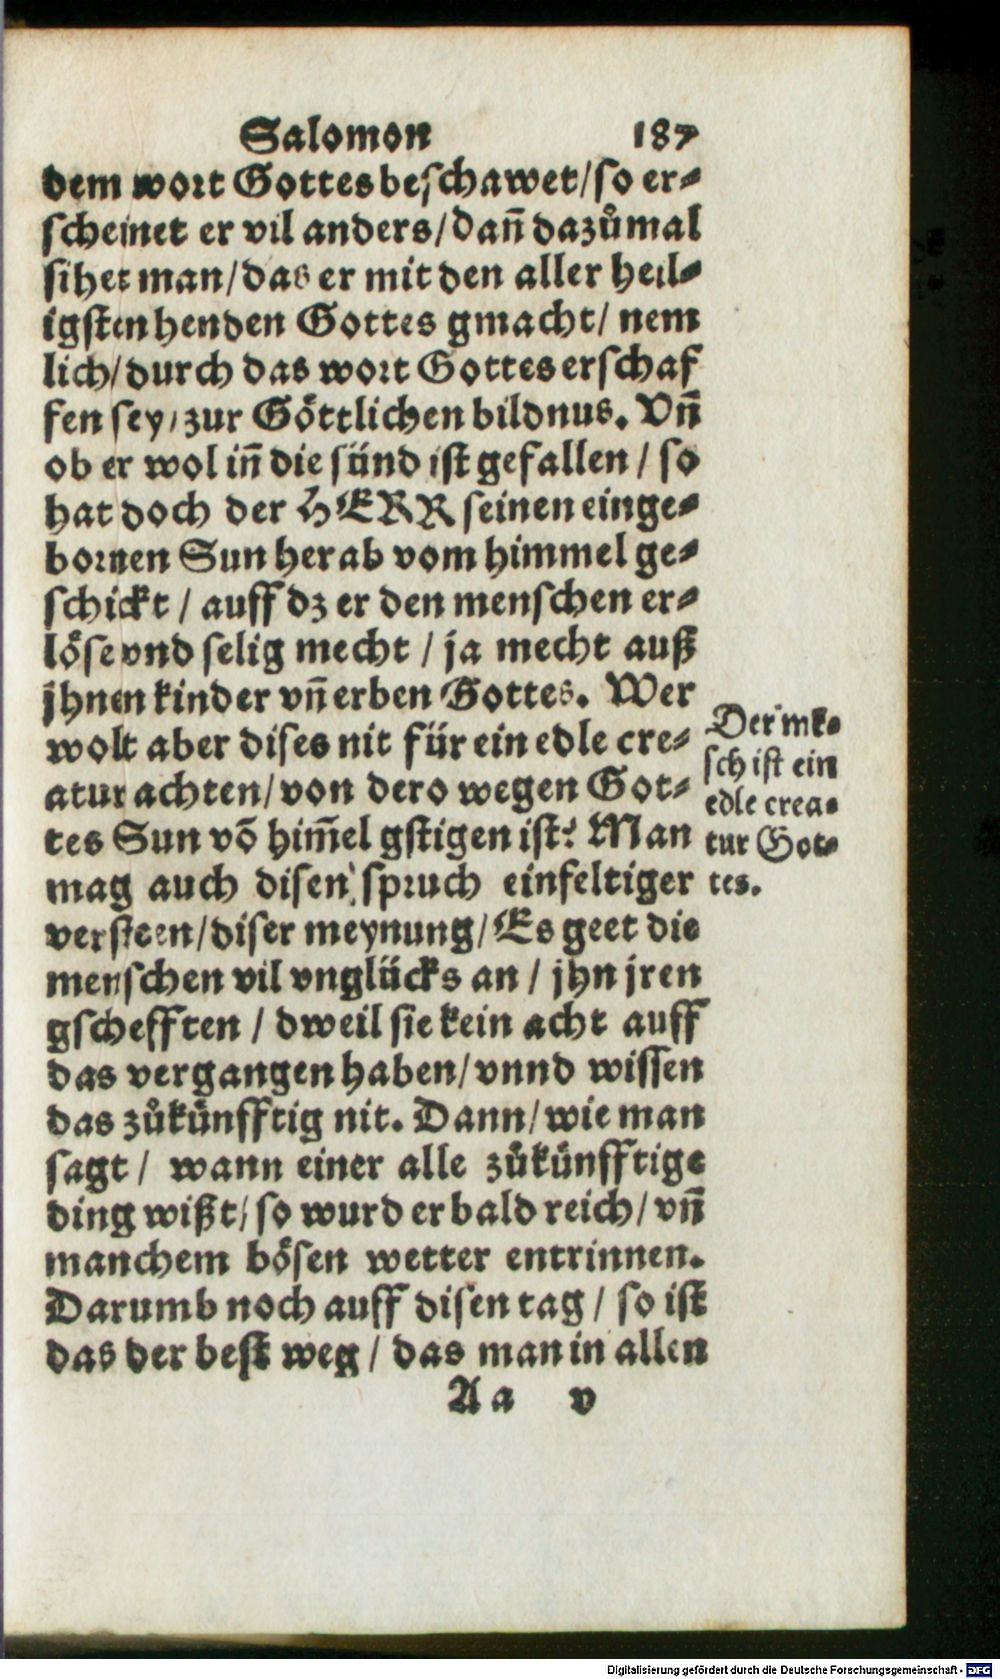 Salomon 187
dem wort Gottes beschawet/so er-
scheinet er vil anders/dañ dazůmal
sihet man/das er mit den aller heil-
igsten henden Gottes gmacht/ nem
lich/durch das wort Gottes erschaf
fen sey/zur Göttlichen bildnus. Vñ
ob er wol iñ die sünd ist gefallen / so
hat doch der HERR seinen einge-
bornen Sun herab vom himmel ge-
schickt / auff dz er den menschen er-
löse vnd selig mecht / ja mecht auß
jhnen kinder vñ erben Gottes. Wer
wolt aber dises nit für ein edle cre-
atur achten/von dero wegen Got-
tes Sun võ him̃el gstigen ist? Man
mag auch disen spruch einfeltiger
versteen/diser meynung/Es geet die
menschen vil vnglücks an / jhn jren
gschefften / dweil sie kein acht auff
das vergangen haben/vnnd wissen
das zůkünfftig nit. Dann/wie man
sagt / wann einer alle zůkünfftige
ding wißt/so wurd er bald reich/vñ
manchem bösen wetter entrinnen.
Darumb noch auff disen tag / so ist
das der best weg / das man in allen
Aa v
Der mẽ-
sch ist ein
edle crea-
tur Got-
tes.
Digitalisierung gefördert durch die Deutsche Forschungsgemeinschaft - DFG